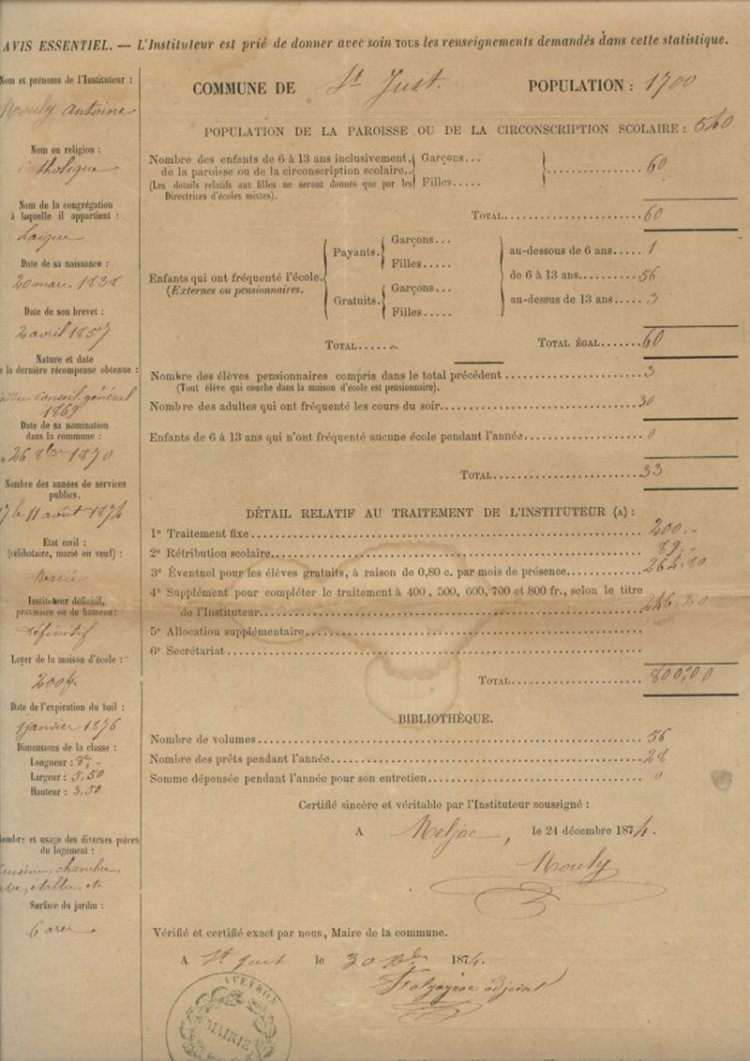 AVIS ESSENTIEL. — L'Instituteur est prié de donner avec soin TOUS les renseignements demandés dans cette statistique.
Nom et prénoms de l'Instituteur :
Rouly Antoine
Nom en religion :
Catholique
Nom de la congrégation
à laquelle il appartient :
Laïque
Date de sa naissance :
20 mars 1838
Date de son brevet :
2 avril 1857
Nature et date
de la dernière récompense obtenue :
Conseil général
1869
Date de sa nomination
dans la commune :
26 8bre 1870
Nombre des années de services
publics.
11 août 1874
Etat civil :
(célibataire, marié ou veuf) :
Marié
Instituteur définitif,
provisoire ou de hameau :
Définitif
Loyer de la maison d'école :
200 f.
Date de l'expiration du bail :
1 janvier 1876
Dimensions de la classe :
Longueur : 8,
Largeur : 5,50
Hauteur : 3,50
Nombre et usage des diverses pièces
du logement :
Cuisine, chambre,
étable, etc
Surface du jardin :
6 ares
COMMUNE DE St Just. POPULATION : 1700
POPULATION DE LA PAROISSE OU DE LA CIRCONSCRIPTION SCOLAIRE : 560
Nombre des enfants de 6 à 13 ans inclusivement, Garçons...
de la paroisse ou de la circonscription scolaire. 60
(Les détails relatifs aux filles ne seront donnés que par les Filles.....
Directrices d'écoles mixtes).
TOTAL. 60
Garçons...
Payants. au-dessous de 6 ans..... 1
Filles.....
Enfants qui ont fréquenté l'école. de 6 à 13 ans. 56
(Externes ou pensionnaires.
Garçons...
Gratuits. au-dessus de 13 ans.... 3
Filles.....
TOTAL...... TOTAL ÉGAL..... 60
Nombre des élèves pensionnaires compris dans le total précédent 3
(Tout élève qui couche dans la maison d'école est pensionnaire).
Nombre des adultes qui ont fréquenté les cours du soir. 30
Enfants de 6 à 13 ans qui n'ont fréquenté aucune école pendant l'année. 0
TOTAL. 33
DÉTAIL RELATIF AU TRAITEMENT DE L'INSTITUTEUR (A) :
1° Traitement fixe 200,"
2° Rétribution scolaire. 89 "
3° Éventuel pour les élèves gratuits, à raison de 0,80 c. par mois de présence. 264.80
4° Supplément pour compléter le traitement à 400, 500, 600, 700 et 800 fr., selon le titre
de l'Instituteur. 246,20
5° Allocation supplémentaire.
6° Secrétariat
TOTAL. 800,00
BIBLIOTHÈQUE.
Nombre de volumes. 56
Nombre des prêts pendant l'année. 28
Somme dépensée pendant l'année pour son entretien. 0
Certifié sincère et véritable par l'Instituteur soussigné :
A Meljac, le 24 décembre 1874.
Rouly
Vérifié et certifié exact par nous, Maire de la commune.
A St Just le 30 Xbre 1874.
adjoint
AVEYRON
MAIRIE